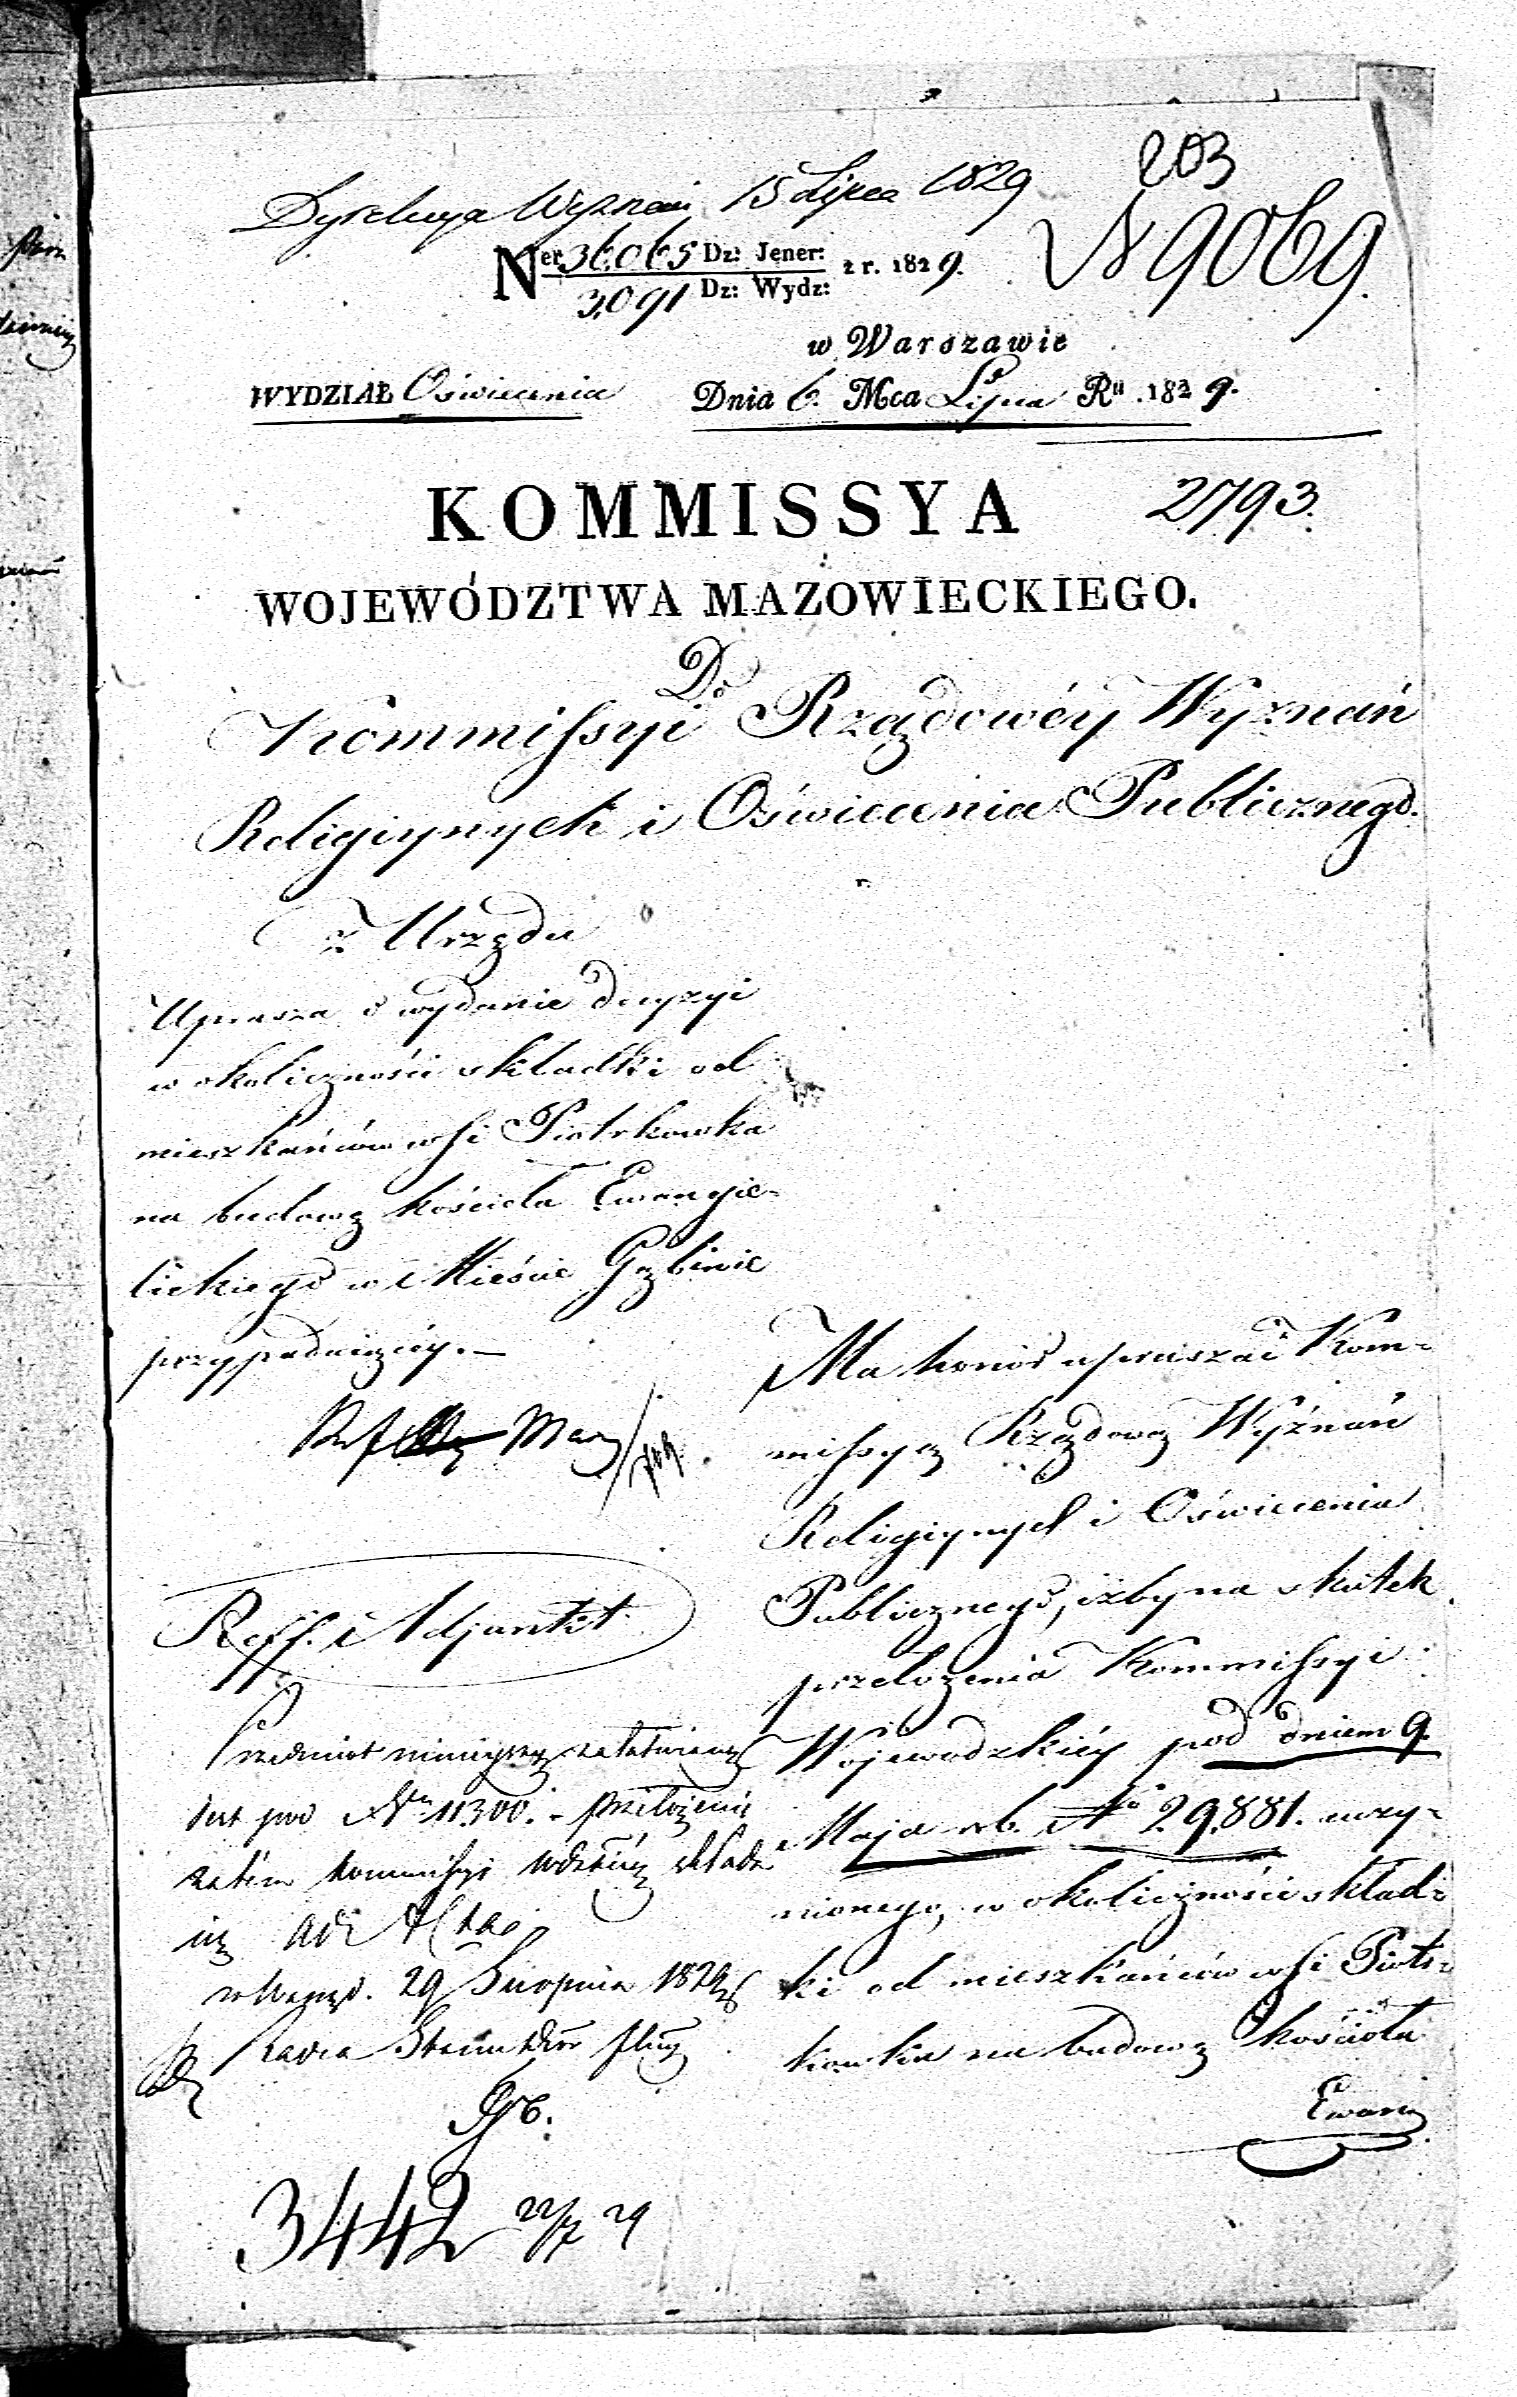 203
Dyrekcya Wyznań 15 Lipca 1829
N 9069.
Ner 36065 Dz: Jener: z r. 1829.
3,091 Dz: Wydz:
w Warszawie
WYDZIAŁ Oświecenia Dnia 6. Mca Lipca Ru .1829.
KOMMISSYA
2793.
WOJEWÓDZTWA MAZOWIECKIEGO.
Do
Kommissyi Rządowéy Wyznań
Religiynych i Oświecenia Publicznego.
z Urzędu
Uprasza o wydanie decyzyi
w okoliczności składki od
mieszkańców wsi Piotrkowka
na budowę kościoła Ewangie-
lickiego w Mieście Gąbinie
przypadaiącéy.—
Reff. i Adjunkt
Przedmiot ninieyszy załatwiony
jest pod Nrm 11300. - przełożenie
zatém kommissyi składa
się Ad Acta
29 Sierpnia 1829
Radca Stanu
3442 22/7 29
Ma honor upraszać Kom-
missyą Rządową Wyznań
Religiynych i Oświecenia
Publicznego, iżby na skutek
przełożenia Kommissyi
Wojewodzkiéy pod dniem 9.
Maja r.b. No 29.881. uczy-
nionego, w okoliczności skład-
ki od mieszkańców wsi Piotr-
kowka na budowę kościoła
Ewang